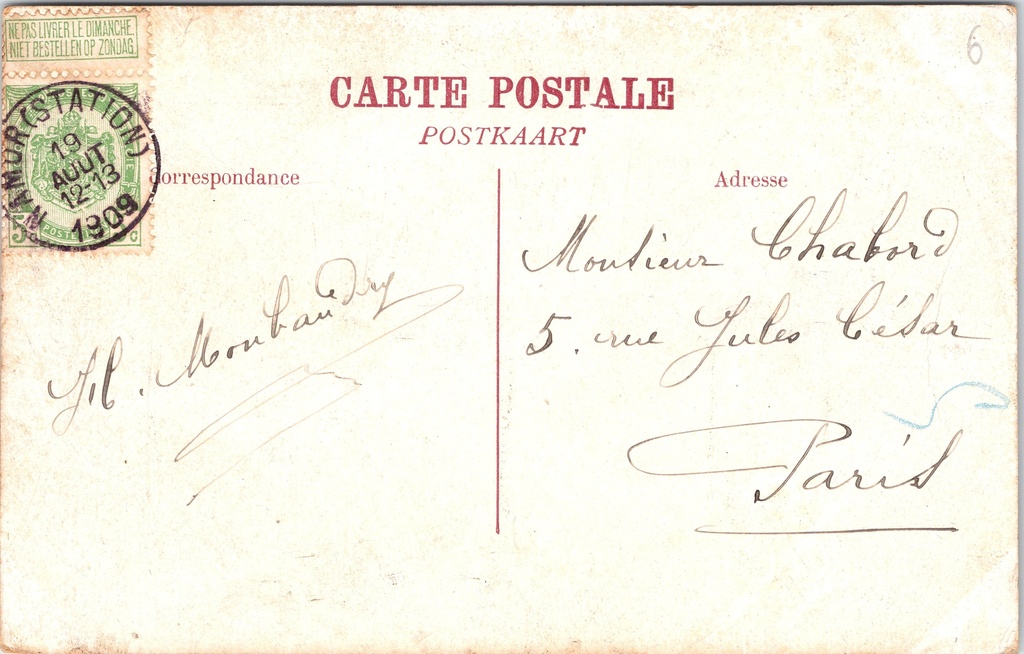 NE PAS LIVRER LE DIMANCHE
NIET BESTELLEN OP ZONDAG
NAMUR (STATION)
19
AOUT
12-13
1909
5 POSTE C
6
CARTE POSTALE
POSTKAART
Correspondance
Adresse
Monsieur Chabord
5. rue Jules César
Paris